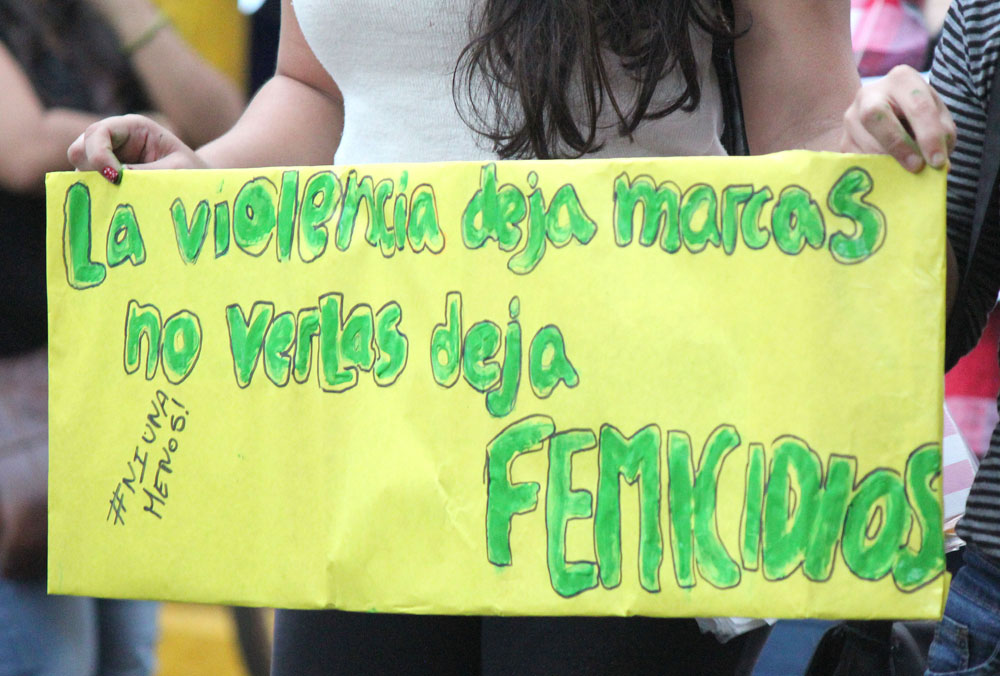 La violencia deja marcas
no verlas deja
FEMICIDIOS
#NI UNA
MENOS!